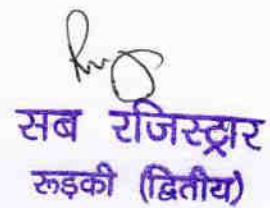 सब रजिस्ट्रार
रूड़की (द्वितीय)